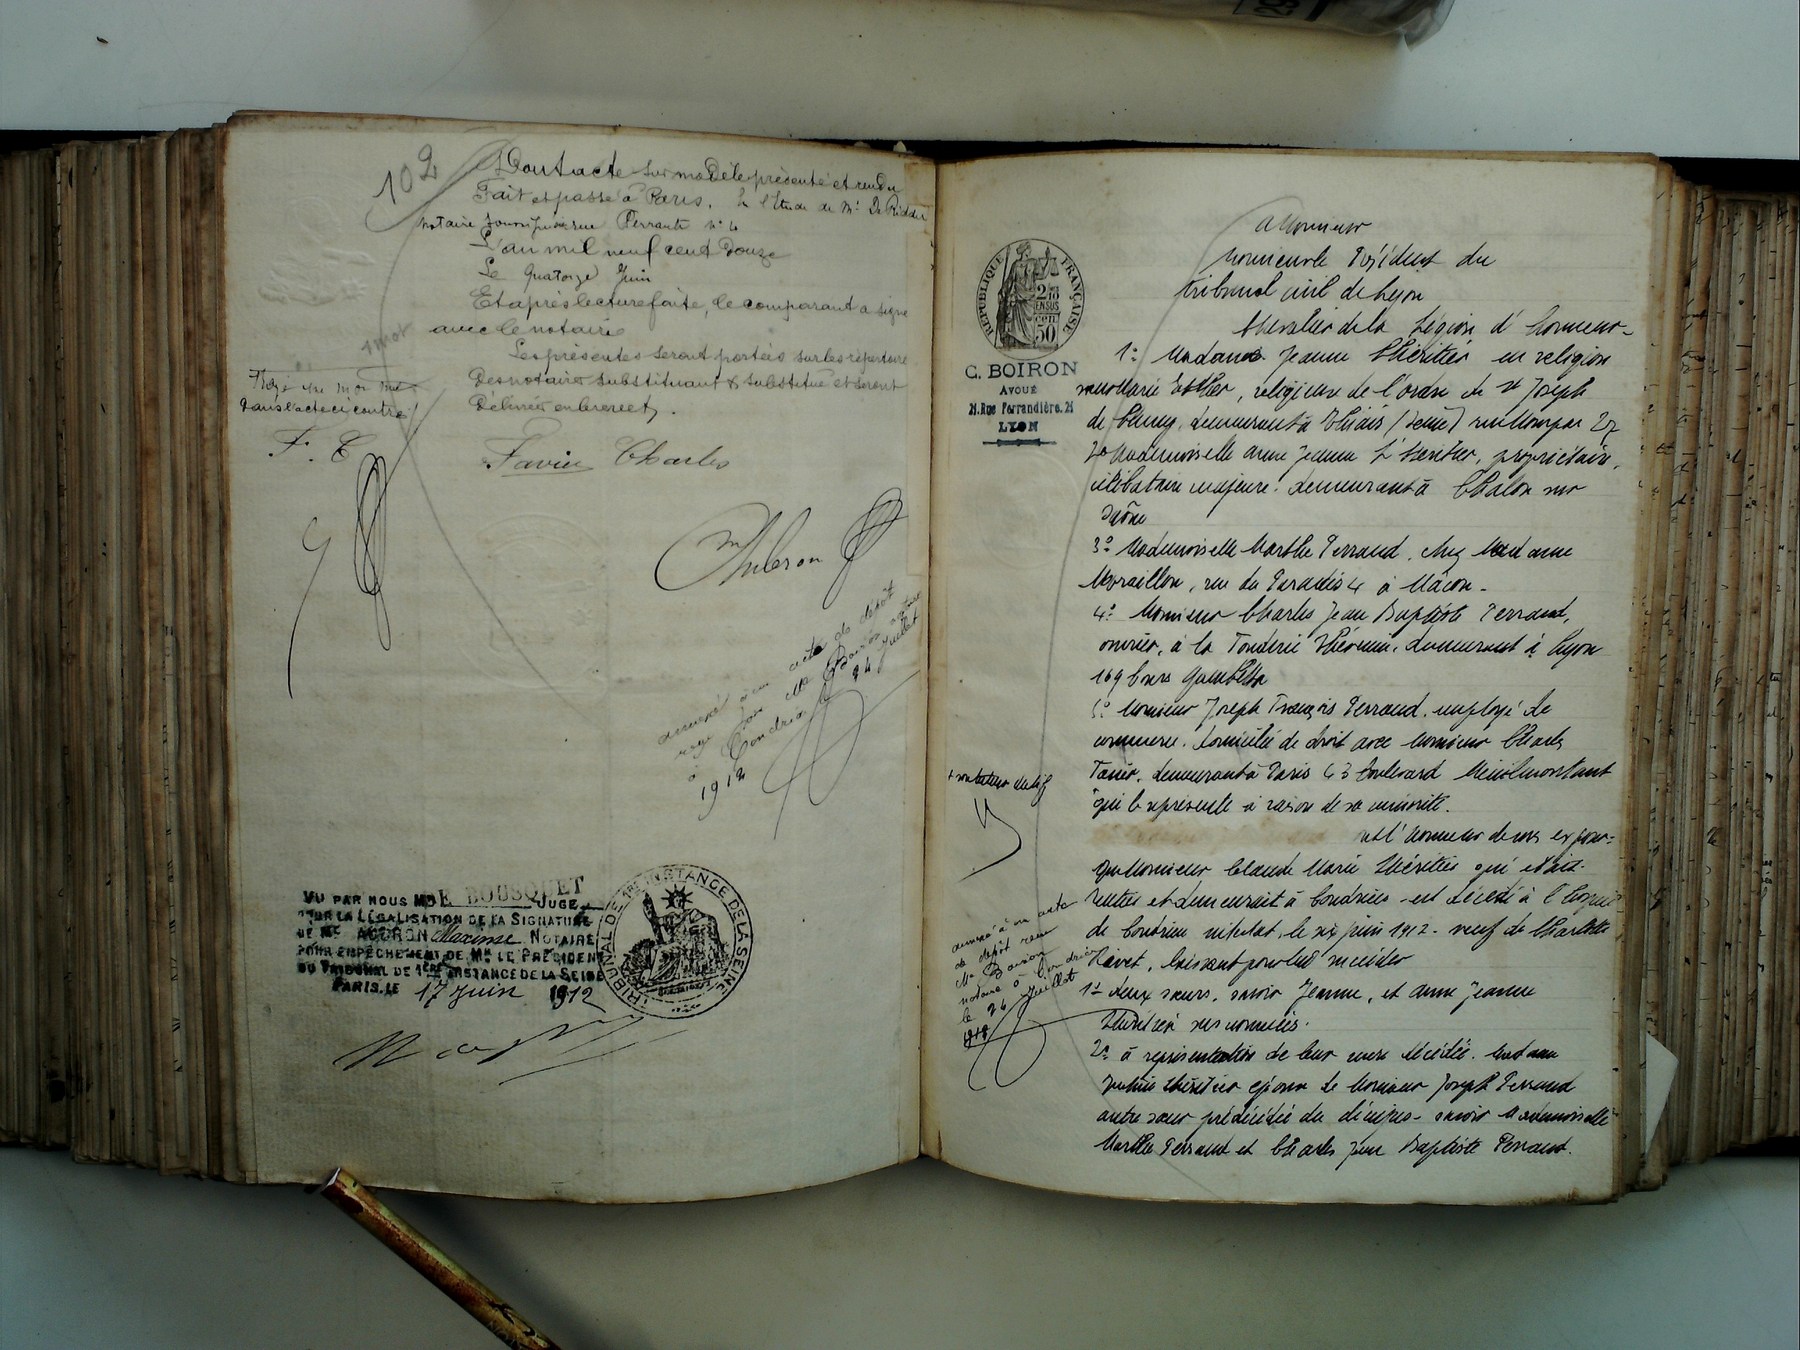 102
Dont acte sur modèle présenté et rendu
Fait et passé à Paris. En l'Etude de Me De Ridder
notaire soussigné rue Perrault no 4
L'an mil neuf cent douze
Le quatorze Juin
Et après lecture faite, le comparant a signé
avec le notaire
Les présentes seront portées sur les répertoires
Des notaires substituant & substitué et seront
Délivrées en brevet.
Rayé un mot nul
Dans l'acte ci contre
F. C
Favier Charles
Auberon
annexé à un acte de dépôt
reçu par Me Boiron notaire
à Condrieu le 24 Juillet
1912
VU PAR NOUS M DE BOUSQUET JUGE
POUR LA LÉGALISATION DE LA SIGNATURE
DE Me AUBRON Maxime NOTAIRE
POUR EMPÊCHEMENT DE Mr LE PRÉSIDENT
DU TRIBUNAL DE 1ÈRE INSTANCE DE LA SEINE
PARIS, LE 17 Juin 1912
TRIBUNAL DE 1RE INSTANCE DE LA SEINE
RÉPUBLIQUE FRANÇAISE
2/10
EN SUS
50
C. BOIRON
AVOUÉ
21. Rue Ferrandière. 21
LYON
A Monsieur
Monsieur le Président du
tribunal civil de Lyon
Chevalier de la Légion d'honneur-
1o Madame Jeanne Lhéritier en religion
soeur Marie Esther, religieuse de l'ordre de St Joseph
de Cluny, demeurant à Thiais (Seine)
2o Mademoiselle Anne Jeanne L'héritier, propriétaire,
célibataire majeure. demeurant à Chalon sur
Saône
3o Mademoiselle Marthe Perraud, chez Madame
Moraillon, rue du Paradis 4 à Mâcon-
4o Monsieur Charles Jean Baptiste Perraud,
ouvrier, à la Fonderie demeurant à Lyon
169 Cours Gambetta
5o Monsieur Joseph François Perraud, employé de
commerce. domicilié de droit avec Monsieur Charles
Favier, demeurant à Paris 63 boulevard Ménilmontant
qui le représente à raison de sa minorité.
+ son tuteur datif
ont l'honneur de vous exposer=
Que Monsieur Claude Marie Lhéritier qui était
rentier et demeurait à Condrieu est décédé à l'hôpital
de Condrieu le six juin 1912. veuf de Charlotte
Havet, laissant pour lui succéder
1o deux soeurs, savoir Jeanne, et Anne Jeanne
Lhéritier sus nommées.
2o à représentation de leur mère décédée. Madame
Lhéritier épouse de Monsieur Joseph Perraud
autre soeur prédécédée du décujus- savoir Mademoiselle
Marthe Perraud et Charles Jean Baptiste Perraud.
annexé à un acte
de dépôt reçu
Me Boiron
notaire à Condrieu
le 24 Juillet
1912